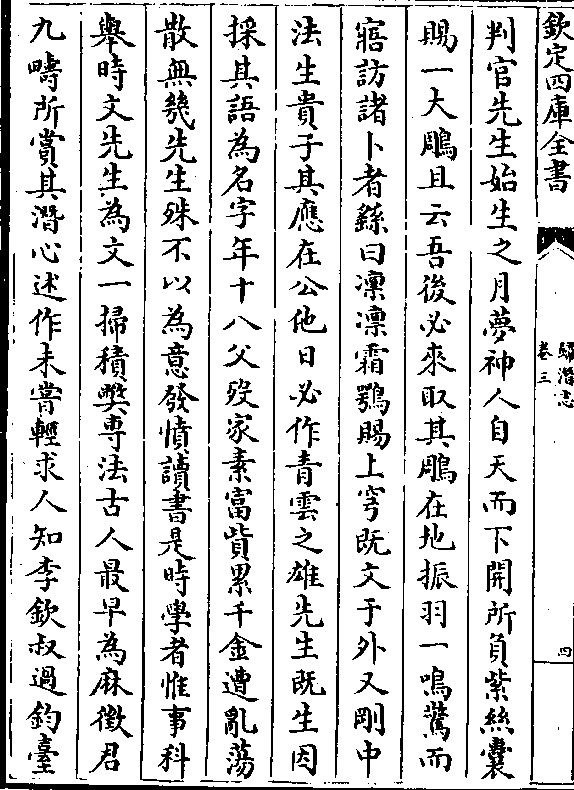 欽定四庫全書
歸潛志
卷三
四
判官先生始生之月夢神人自天而下開所負紫絲囊
賜一大鵰且云吾後必來取其鵰在地振羽一鳴驚而
寤訪諸卜者繇曰凛凛霜鶚賜上穹既文于外又剛中
法生貴子其應在公他日必作青雲之雄先生既生因
採其語為名字年十八父歿家素富貲累千金遭亂蕩
散無幾先生殊不以為意發憤讀書是時學者惟事科
舉時文先生為文一掃積弊専法古人最早為麻徵君
九疇所賞其潛心述作未嘗輕求人知李欽叔過鈞臺